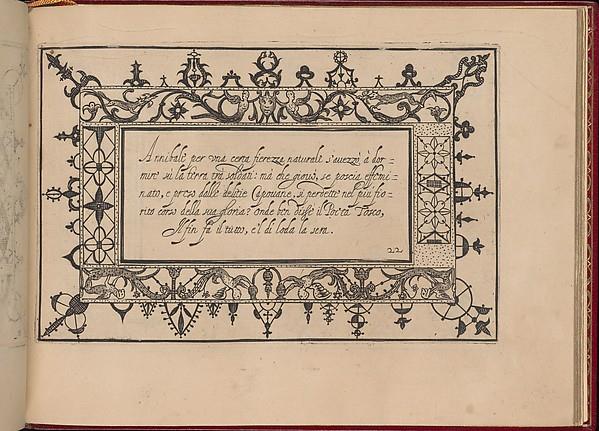 Annibale per una certa fierezza naturale s'auezzò à dor=
mire sù la terra trà soldati: mà che giouò, se poscia effemi=
nato, e preso dalle delitie Capouane, si perdette nel più fio=
rito corso della sua gloria? onde ben disse il Poeta Tosco,
Al fin fà il tutto, e'l dì loda la sera.
22